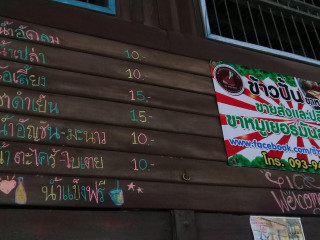 น้ำอัดลม
น้ำเปล่า 10.-
โอเลี้ยง 15.-
ชาดำเย็น 15.-
น้ำอัญชัน-มะนาว 10.-
น้ำตะไคร้-ใบเตย 10.-
น้ำแข็งฟรี
ข้าวปั้น
ขายส่งและปลี
ขาหมูเยอรมัน
www.facebook.com/
โทร. 093-9
Welcome